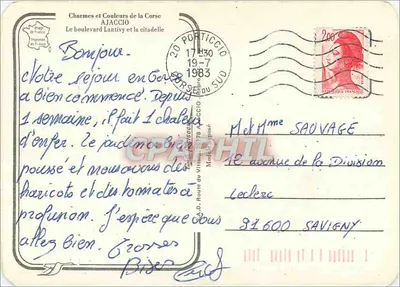 Charmes et Couleurs de la Corse
AJACCIO
Le boulevard Lantivy et la citadelle
20 PORTICCIO
17H30
19-7
1983
CORSE DU SUD
2,00
Bonjour.
Notre séjour en Corse
a bien commencé. Depuis
1 semaine, il fait 1 chaleur
d'enfer. Le jardin a bien
poussé et nous avons des
haricots et des tomates à
profusion. J'espère que vous
allez bien. Grosses
Bises
M et Mme SAUVAGE
avenue de la Division
Leclerc
91600 SAVIGNY
CPAPHIL